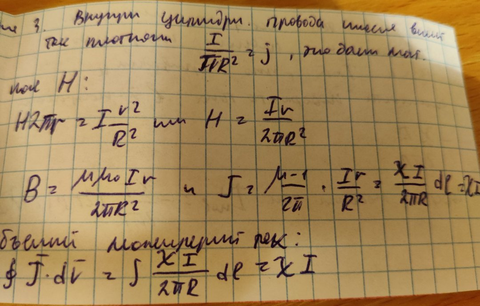 3. Внутри цилиндр. провода имеем
ток плотности I/πR² = j, это даёт
поле H:
H2πr = I r²/R² или H = Ir/2πR²
B = μμ₀Ir/2πR² и J = μ-1/2π · Ir/R² = χI/2πR dl = χI
бъемный молекулярный ток:
∮ J̄·dr̄ = ∫ χI/2πR dl = χI